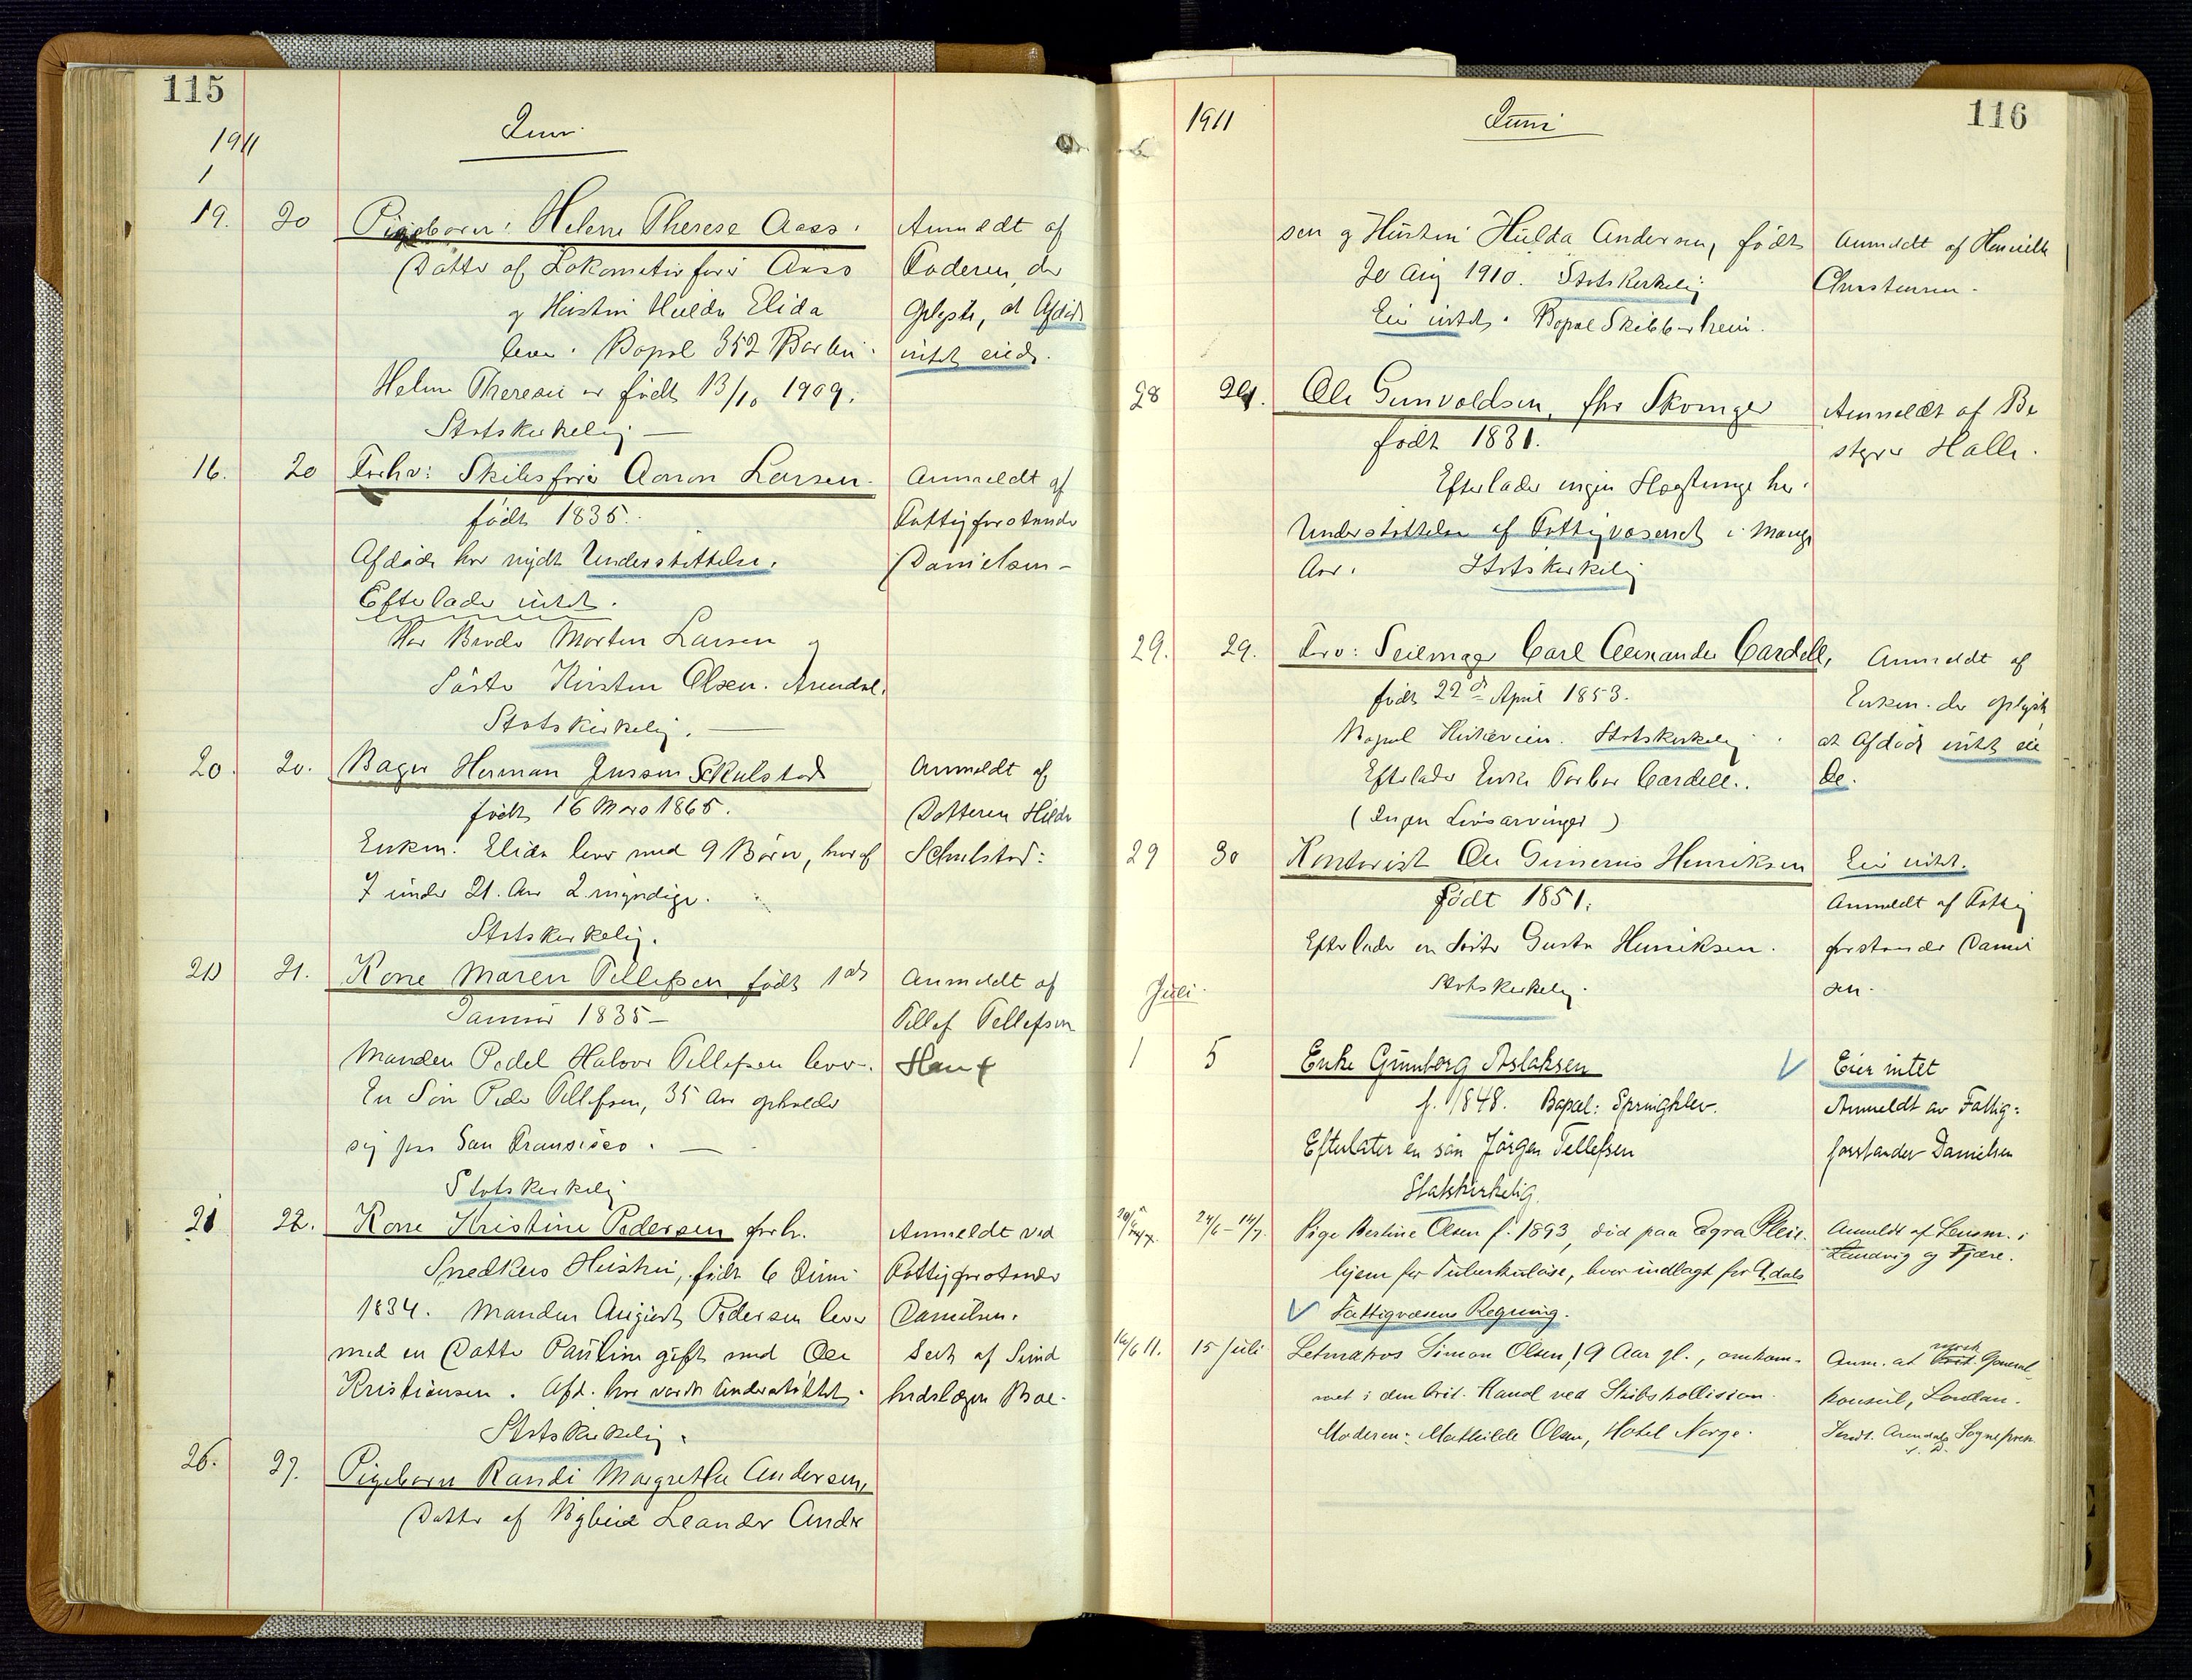 115
1911
Juni
1
19. 20 Pigebarn: Helene Therese Aass. Anmeldt af
Datter af Lokomotivfører Aass Faderen, der
og Hustru Hulda Elida oplyste, at Afdøde
lever. Bopæl 352 Barbu. intet eiede.
Helene Therese er født 13/10 1909.
Statskirkelig —
16. 20 Forhv: Skibsfører Aanon Larsen. Anmeldt af
født 1835. Fattigforstander
Afdøde har nydt Understøttelse. Danielsen –
Efterlader intet.
Har Broder Morten Larsen og
Søster Kirsten Olsen. Arendal.
Statskirkelig. —
20. 20. Bager Herman Jensen Schulstad Anmeldt af
født 16 Mars 1865. Datteren Hilda
Enken: Elida lever med 9 Børn, hvoraf Schulstad:
7 under 21. Aar 2 myndige.
Statskirkelig.
20 21. Kone Maren Tellefsen født 1ste Anmeldt af
Januar 1835 – Tellef Tellefsen
Manden Pedel Halvor Tellefsen lever.
En Søn Peder Tellefsen, 35 Aar opholder
sig paa San Fransisco. —
Statskirkelig
21 22. Kone Kristine Pedersen forh. Anmeldt ved
Snedkers Hustru, født 6 Juni Fattigforstander
1834. Manden August Pedersen lever Danielsen.
med en Datter Pauline gift med Ole Seet af Sund
Kristiansen. Afd. har været understøttet. hedslægen Boe.
Statskirkelig.
26. 27. Pigebarn Randi Margrethe Andersen,
Datter af Leander Ander
116
1911
Juni
sen og Hustru Hulda Andersen, født Anmeldt af Henriette
20 Aug 1910. Statskirkelig Christensen.
Eier intet. Bopæl Skibberheien.
28 29. Ole Gunvaldsen, fhv Skomager Anmeldt af Be
født 1831. styrer Halle.
Efterlader ingen Slægtninge her.
Understøttelse af Fattigvæsenet i mange
Aar. Statskirkelig
29. 29. Forv: Seilmager Carl Alexander Cardell, Anmeldt af
født 22de April 1853. Enken. der oplyste
Bopæl Kitteveien. Statskirkelig. at Afdøde intet eie
Efterlader Enke Torbor Cardell. de.
(Ingen Livsarvinger)
29 30 Kontorist Ole Gunerius Henriksen Eier intet.
født 1851. Anmeldt af Fattig
Efterlader en Søster Gusta Henriksen. forstander Daniel
Statskirkelig. sen.
Juli.
1 5 Enke Gunborg Aslaksen Eier intet
f. 1848. Bopæl: Springklev. Anmeldt av Fattig=
Efterlater en søn Jørgen Tellefsen forstander Danielsen
Statskirkelig.
24/6 – 14/7. Pige Bertine Olsen f. 1893, død paa Egra Pleie- Anmeldt af Lensm. i
hjem for Tuberkuløse, hvor indlagt for Landvig og Fjære.
Fattigvæsens Regning.
16/6 11. 15 Juli Letmatros Simon Olsen, 19 Aar gl., omkom- Anm. at norsk General-
met i den brit. Kanal ved Skibskollision. konsul, London.
Moderen: Mathilde Olsen, Hotel Norge. Sendt. Arendals Sognepræst